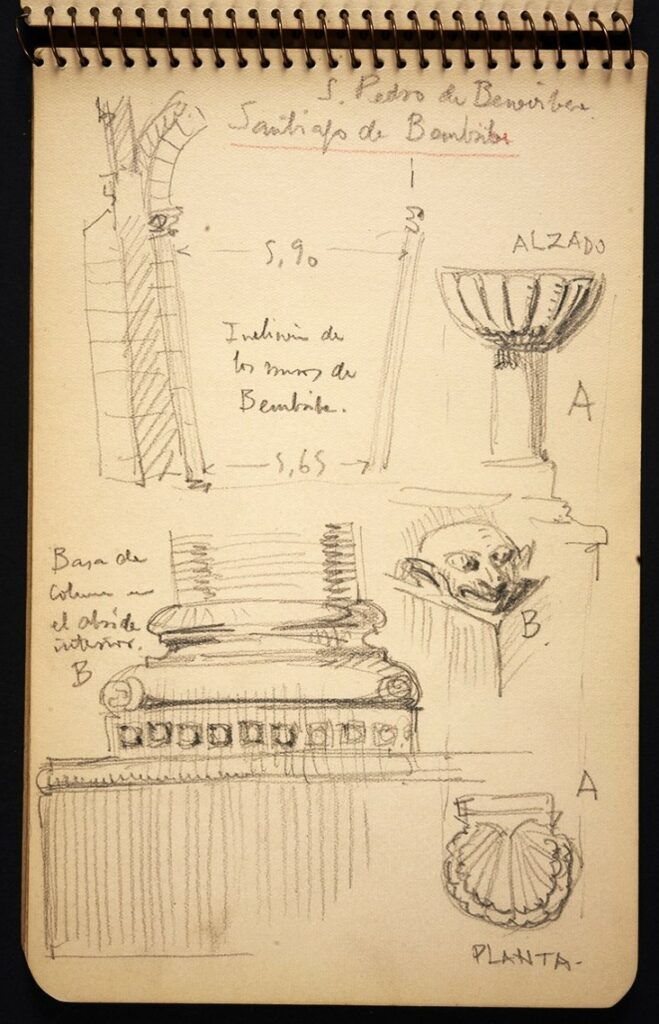 S. Pedro de Benvibre
Santiago de Bembibre
ALZADO
5,90
Inclinación de
los muros de
Bembibre.
A
5,65
Basa de
columna en
el abside
interior.
B
B
A
PLANTA-